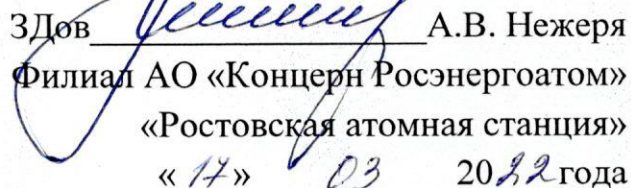 ЗДов А.В. Нежеря
Филиал АО «Концерн Росэнергоатом»
«Ростовская атомная станция»
« 17 » 03 2022 года